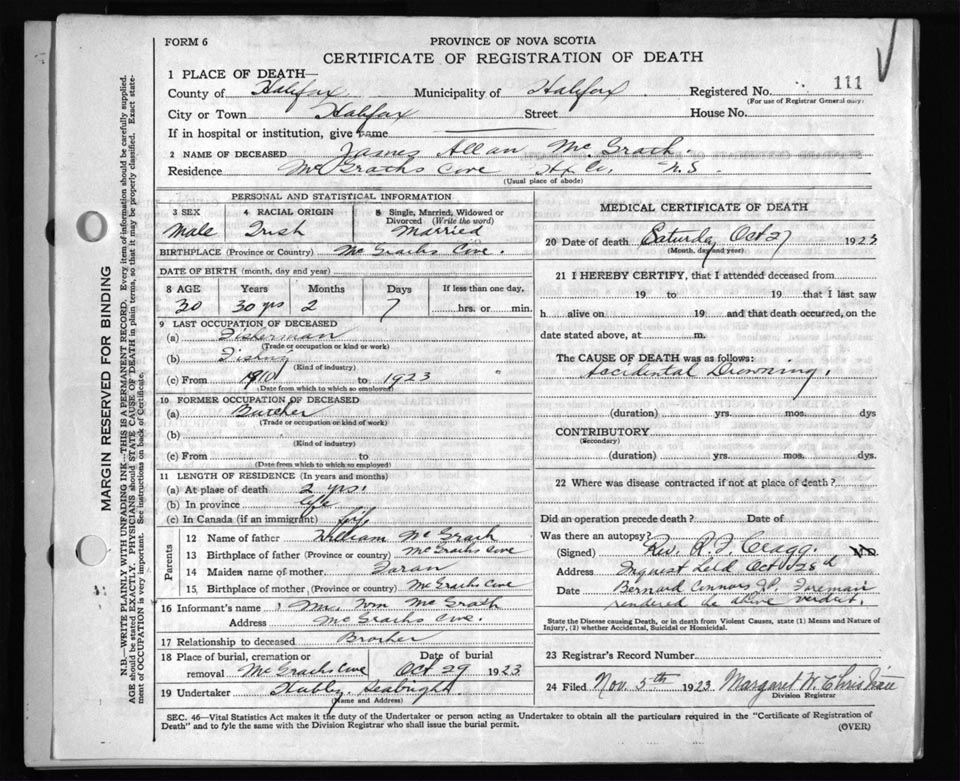 FORM 6
PROVINCE OF NOVA SCOTIA
CERTIFICATE OF REGISTRATION OF DEATH
1 PLACE OF DEATH—
County of Halifax Municipality of Halifax Registered No. 111
(For use of Registrar General only)
City or Town Halifax Street House No.
If in hospital or institution, give name
2 NAME OF DECEASED James Allan McGrath.
Residence McGraths Cove Hx Co. N.S.
(Usual place of abode)
MARGIN RESERVED FOR BINDING
N.B.—WRITE PLAINLY WITH UNFADING INK—THIS IS A PERMANENT RECORD. Every item of information should be carefully supplied.
AGE should be stated EXACTLY. PHYSICIANS should STATE CAUSE OF DEATH in plain terms, so that it may be properly classified. Exact state-
ment of OCCUPATION is very important. See instructions on back of Certificate.
PERSONAL AND STATISTICAL INFORMATION
3 SEX 4 RACIAL ORIGIN 5 Single, Married, Widowed or
Divorced (Write the word)
Male Irish Married
BIRTHPLACE (Province or Country) McGraths Cove.
DATE OF BIRTH (month, day and year)
8 AGE Years Months Days If less than one day,
30 30 yrs 2 7 hrs. or min.
9 LAST OCCUPATION OF DECEASED
(a) Fisherman
(Trade or occupation or kind or work)
(b) Fishing
(Kind of industry)
(c) From 1910 to 1923
(Date from which to which so employed)
10 FORMER OCCUPATION OF DECEASED
(a) Butcher
(Trade or occupation or kind of work)
(b)
(Kind of industry)
(c) From to
(Date from which to which so employed)
11 LENGTH OF RESIDENCE (In years and months)
(a) At place of death 2 yrs.
(b) In province life
(c) In Canada (if an immigrant) life
Parents
12 Name of father William McGrath
13 Birthplace of father (Province or country) McGraths Cove
14 Maiden name of mother Foran
15 Birthplace of mother (Province or country) McGraths Cove
16 Informant's name Mr. Wm McGrath
Address McGraths Cove.
17 Relationship to deceased Brother
18 Place of burial, cremation or Date of burial
removal McGraths Cove Oct 29 1923
19 Undertaker Hubley Seabright
(Name and Address)
MEDICAL CERTIFICATE OF DEATH
20 Date of death Saturday Oct 27 1923
(Month, day and year)
21 I HEREBY CERTIFY, that I attended deceased from
19 to 19 that I last saw
h alive on 19 and that death occurred, on the
date stated above, at m.
The CAUSE OF DEATH was as follows:
Accidental Drowning.
(duration) yrs. mos. dys
CONTRIBUTORY
(Secondary)
(duration) yrs. mos. dys.
22 Where was disease contracted if not at place of death?
Did an operation precede death? Date of
Was there an autopsy?
(Signed) Rev. R. J. M.D.
Address Inquest held Oct 28
Date Bernard Connors J.P. Foreman
rendered the above verdict.
State the Disease Causing Death, or in death from Violent Causes, state (1) Means and Nature of
Injury, (2) whether Accidental, Suicidal or Homicidal.
23 Registrar's Record Number
24 Filed Nov. 5th 1923 Margaret W. Christian
Division Registrar
SEC. 46—Vital Statistics Act makes it the duty of the Undertaker or person acting as Undertaker to obtain all the particulars required in the "Certificate of Registration of
Death" and to fyle the same with the Division Registrar who shall issue the burial permit.
(OVER)